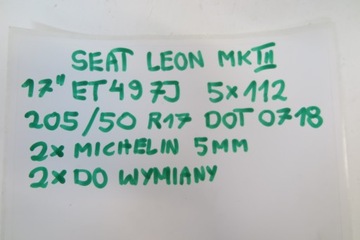 SEAT LEON MKIII
17" ET49 7J 5x112
205/50 R17 DOT 0718
2x MICHELIN 5MM
2x DO WYMIANY